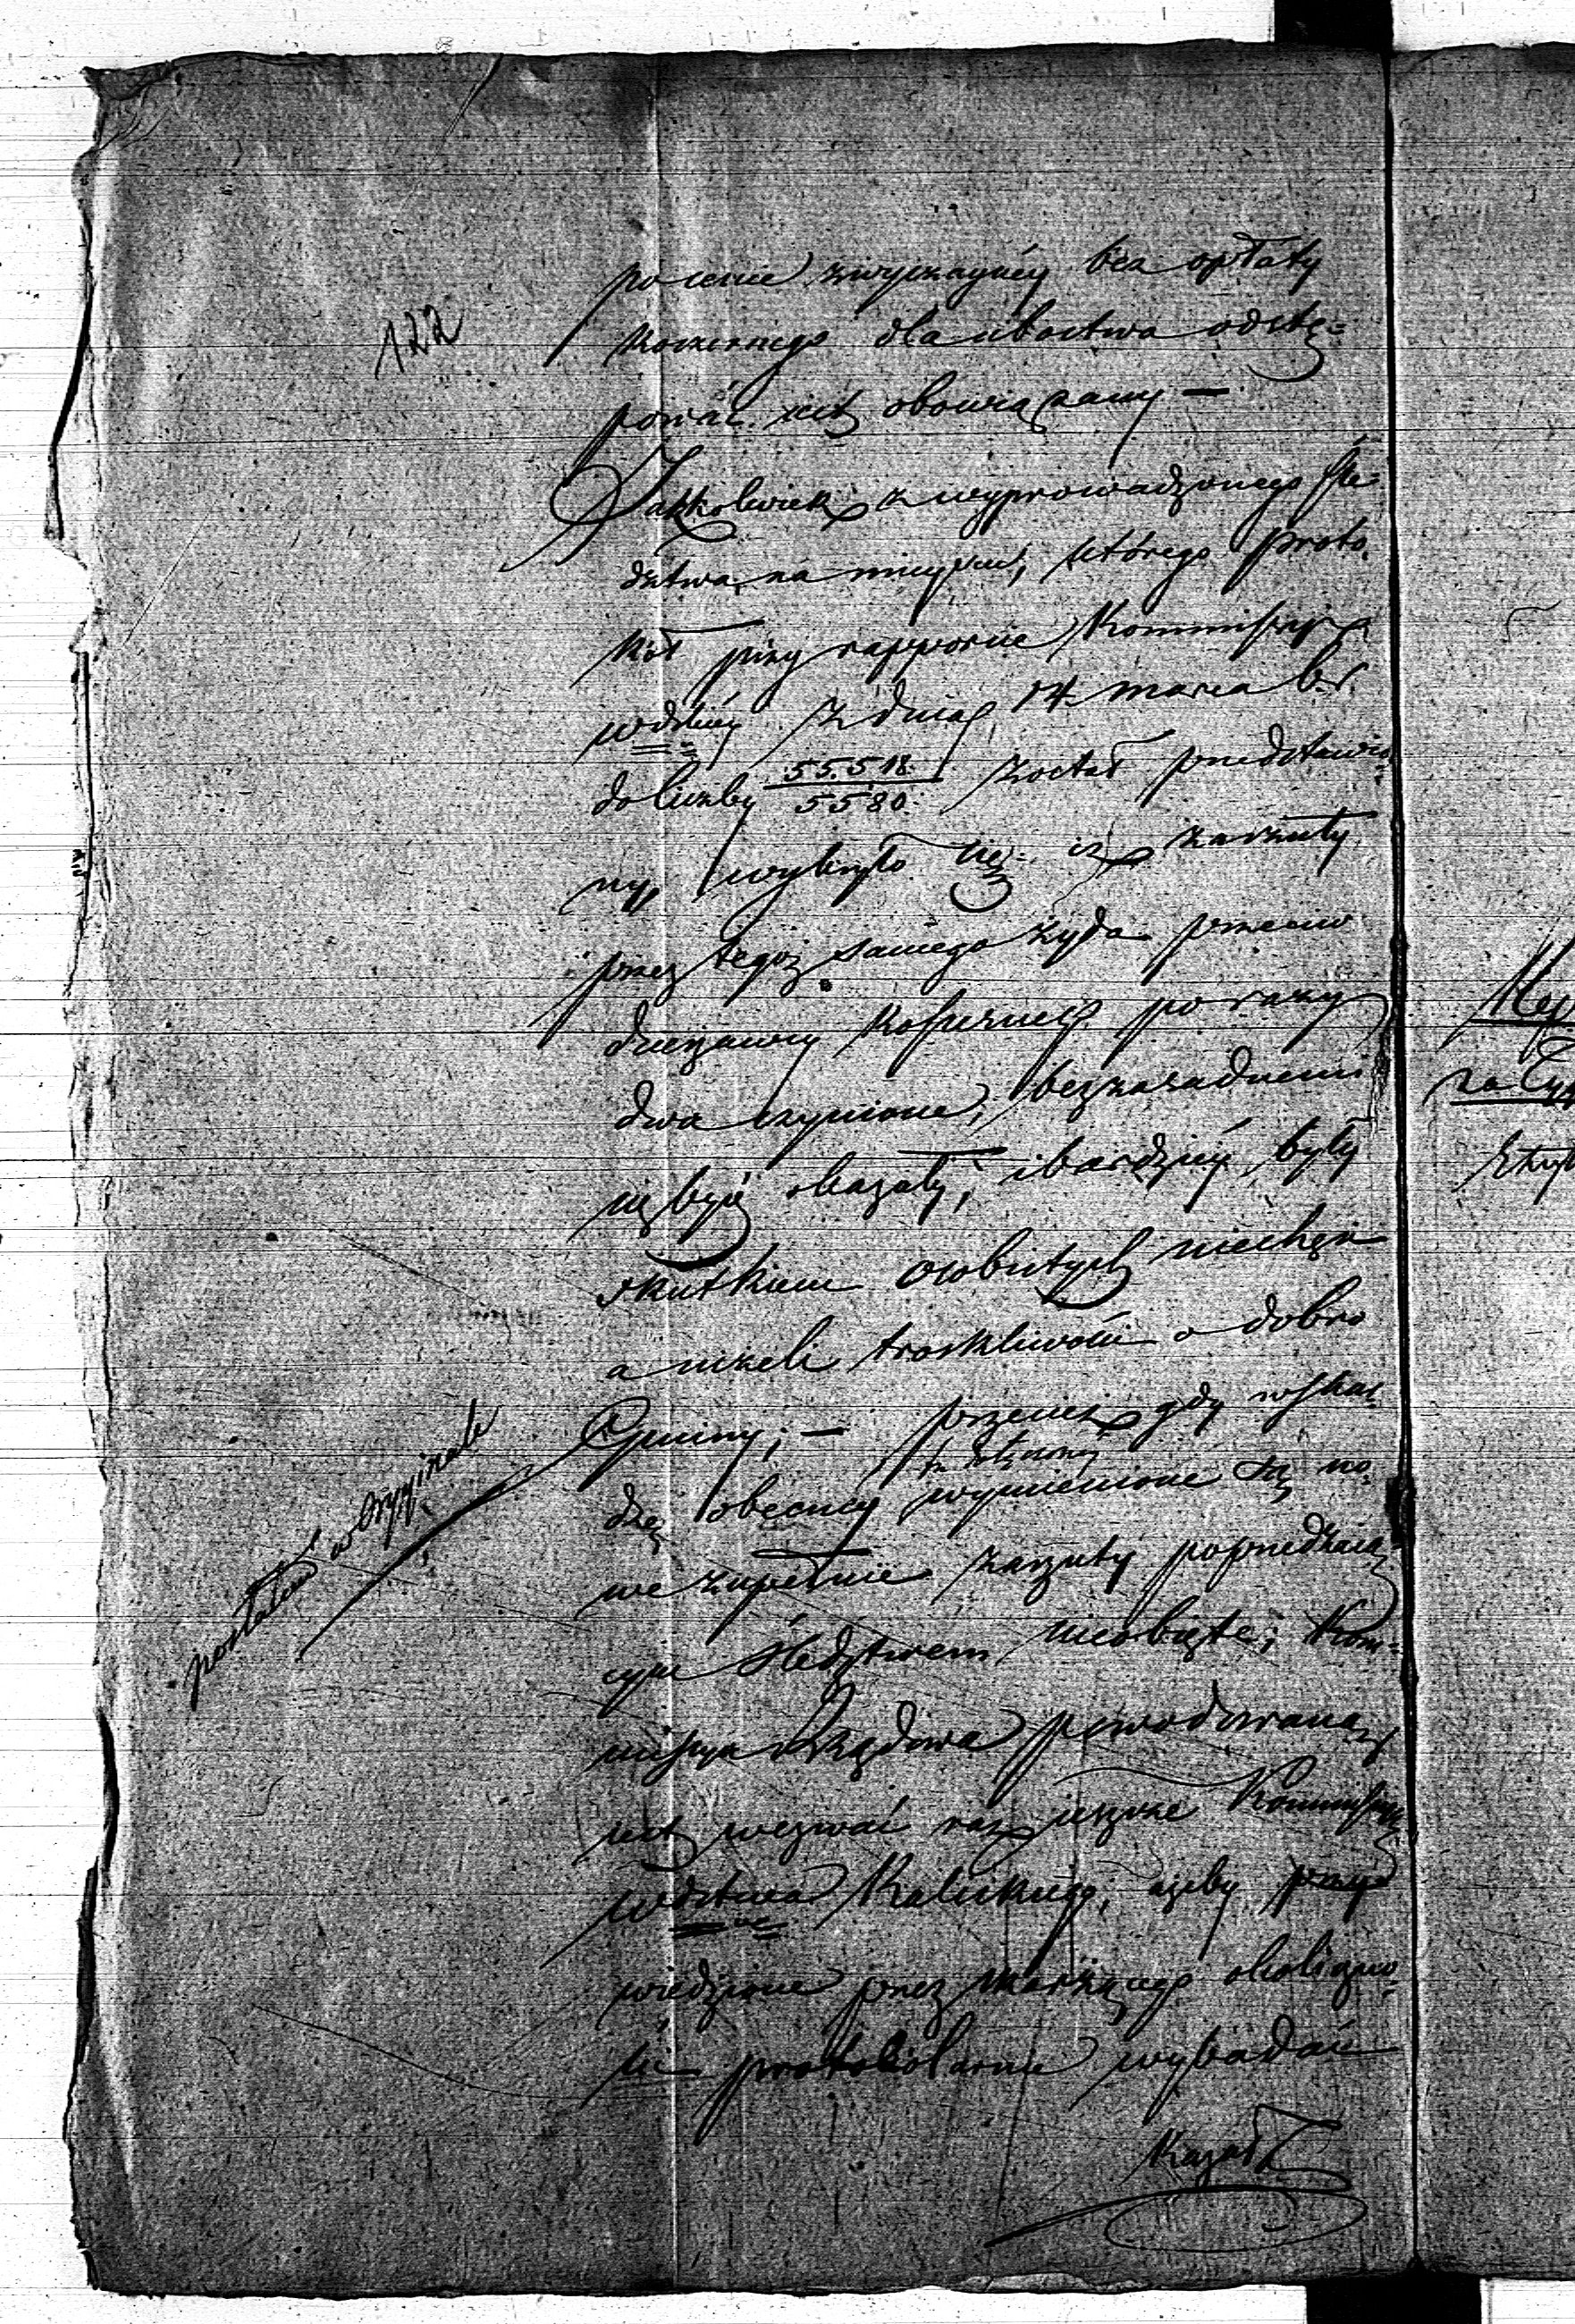 122
po cenie zwyczaynéy bez opłaty
koszernego dla ubóstwa odstę=
pować iest obowiązany —
Jakkolwiek z wyprowadzonego śle-
dztwa na mieyscu, którego proto-
kół przy rapporcie Kommissyi
wdzkiéy z dnia 14 marca b.r.
do liczby 55.518. / 5580. został przedstawio=
ny, wykryło się iż zarzuty
przez tegoż samego żyda przeciw
dzierżawcy koszernego po razy
dwa czynione, bezzasadnemi
się być okazały, i bardziéy były
skutkiem osobistych niechęci
a niżeli troskliwości o dobro
Gminy; — przecież gdy w skar-
dze obecnéy wymienione są no-
we zupełnie zarzuty poprzedzaią-
cym śledztwem nieobięte; Kom-
missya Rządowa powodowaną
iest wezwać raz ieszcze Kommissyę
wdztwa Kaliskiego, ażeby przy-
wiedzione przez skarżącego okoliczno-
ści protokolarnie wybadać
kazała
posłałem w oryginale